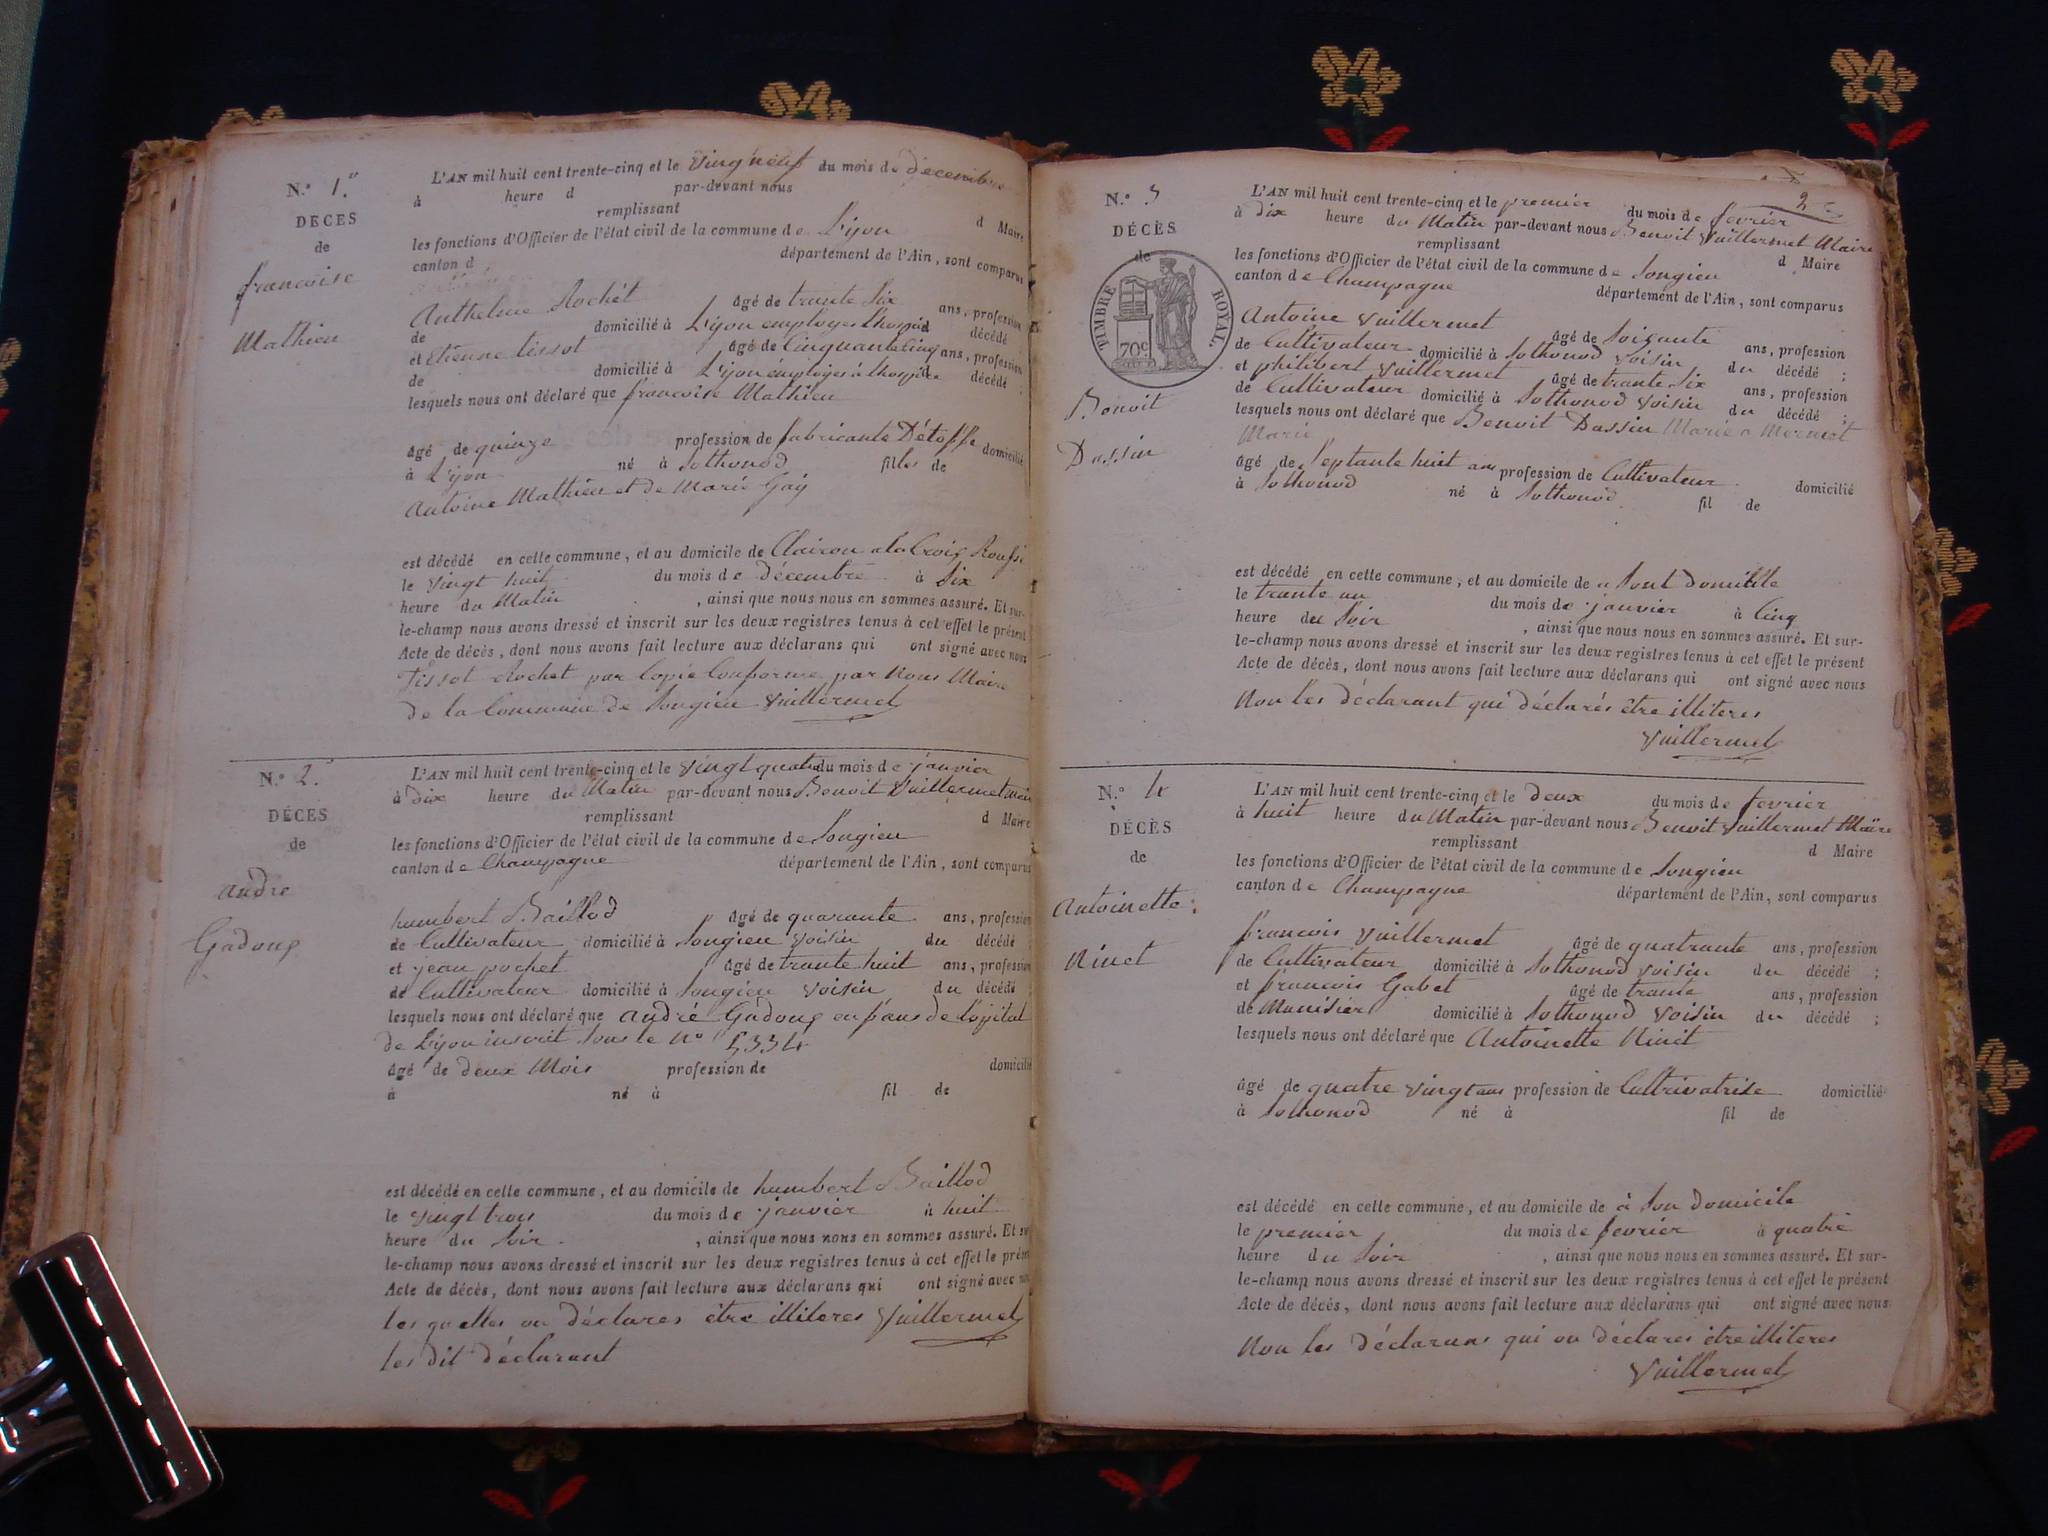 N.º 1.er
DÉCÈS
de
francoise
Mathieu
L'AN mil huit cent trente-cinq et le vingt neuf du mois de décembre
à heure d par-devant nous
remplissant d Maire
les fonctions d'Officier de l'état civil de la commune de Lÿon
canton d département de l'Ain, sont comparus
Anthelme Rochet âgé de trante six ans, profession
de domicilié à Lÿon employer lhospid décédé
et Etienne tissot âgé de Cinquante Cinq ans, profession
de domicilié à Lÿon employer à lhospice d décédé ;
lesquels nous ont déclaré que francoise Mathieu
âgé de quinze profession de fabricante Détoffe domicilié
à Lÿon né à Sothonod fille de
Antoine Mathieu et de Marie Gaÿ
est décédé en cette commune, et au domicile de Clairon a la Croix Rousse
le vingt huit du mois de décembre à six
heure du Matin , ainsi que nous nous en sommes assuré. Et sur-
le-champ nous avons dressé et inscrit sur les deux registres tenus à cet effet le présent
Acte de décès, dont nous avons fait lecture aux déclarans qui ont signé avec nous
Tissot Rochet par Copie Conforme par Nous Maire
de la Commune de Songieu Vuillermet
N.º 2.
DÉCÈS
de
andre
Gadoux
L'AN mil huit cent trente-cinq et le vingt quatre du mois de janvier
à dix heure du Matin par-devant nous Benoit Vuillermet Maire
remplissant d Maire
les fonctions d'Officier de l'état civil de la commune de Songieu
canton de Champagne département de l'Ain, sont comparus
humbert Baillod âgé de quarante ans, profession
de Cultivateur domicilié à Songieu voisin du décédé ;
et jean pochet âgé de trante huit ans, profession
de Cultivateur domicilié à Songieu voisin du décédé ;
lesquels nous ont déclaré que andré Gadoux enfans de l'opital
de Lÿon inscrit sous le Nº 5334
âgé de deux Mois profession de domicilié
à né à fil de
est décédé en cette commune, et au domicile de humbert Baillod
le vingt trois du mois de janvier à huit
heure du soir , ainsi que nous nous en sommes assuré. Et sur-
le-champ nous avons dressé et inscrit sur les deux registres tenus à cet effet le présent
Acte de décès, dont nous avons fait lecture aux déclarans qui ont signé avec nous
les quelles on déclares être illiteres Vuillermet
les dit déclarant
2
N.º 3
DÉCÈS
de
TIMBRE ROYAL.
70c
Benoit
Dassin
L'AN mil huit cent trente-cinq et le premier du mois de fevrier
à dix heure du Matin par-devant nous Benoit Vuillermet Maire
remplissant d Maire
les fonctions d'Officier de l'état civil de la commune de Songieu
canton de Champagne département de l'Ain, sont comparus
Antoine Vuillermet âgé de soixante ans, profession
de Cultivateur domicilié à Sothonod voisin du décédé ;
et philibert Vuillermet âgé de trante six ans, profession
de Cultivateur domicilié à Sothonod voisin du décédé ;
lesquels nous ont déclaré que Benoit Dassin Marié a Mermet
Marie
âgé de septante huit ans profession de Cultivateur domicilié
à Sothonod né à Sothonod fil de
est décédé en cette commune, et au domicile de a sont domicille
le trante un du mois de janvier à Cinq
heure du soir , ainsi que nous nous en sommes assuré. Et sur-
le-champ nous avons dressé et inscrit sur les deux registres tenus à cet effet le présent
Acte de décès, dont nous avons fait lecture aux déclarans qui ont signé avec nous
Non les déclarant qui déclarés être illiteres
Vuillermet
N.º 4
DÉCÈS
de
Antoinette
Ninet
L'AN mil huit cent trente-cinq et le deux du mois de fevrier
à huit heure du Matin par-devant nous Benoit Vuillermet Maire
remplissant d Maire
les fonctions d'Officier de l'état civil de la commune de Songieu
canton de Champagne département de l'Ain, sont comparus
francois Vuillermet âgé de quatrante ans, profession
de Cultivateur domicilié à Sothonod voisin du décédé ;
et francois Gabet âgé de trante ans, profession
de Menisier domicilié à Sothonod voisin du décédé ;
lesquels nous ont déclaré que Antoinette Ninet
âgé de quatre vingt ans profession de Cultrivatrise domicilié
à Sothonod né à fil de
est décédé en cette commune, et au domicile de à son domicile
le premier du mois de fevrier à quatre
heure du soir , ainsi que nous nous en sommes assuré. Et sur-
le-champ nous avons dressé et inscrit sur les deux registres tenus à cet effet le présent
Acte de décès, dont nous avons fait lecture aux déclarans qui ont signé avec nous
Non les déclarans qui on déclares être illiteres
Vuillermet